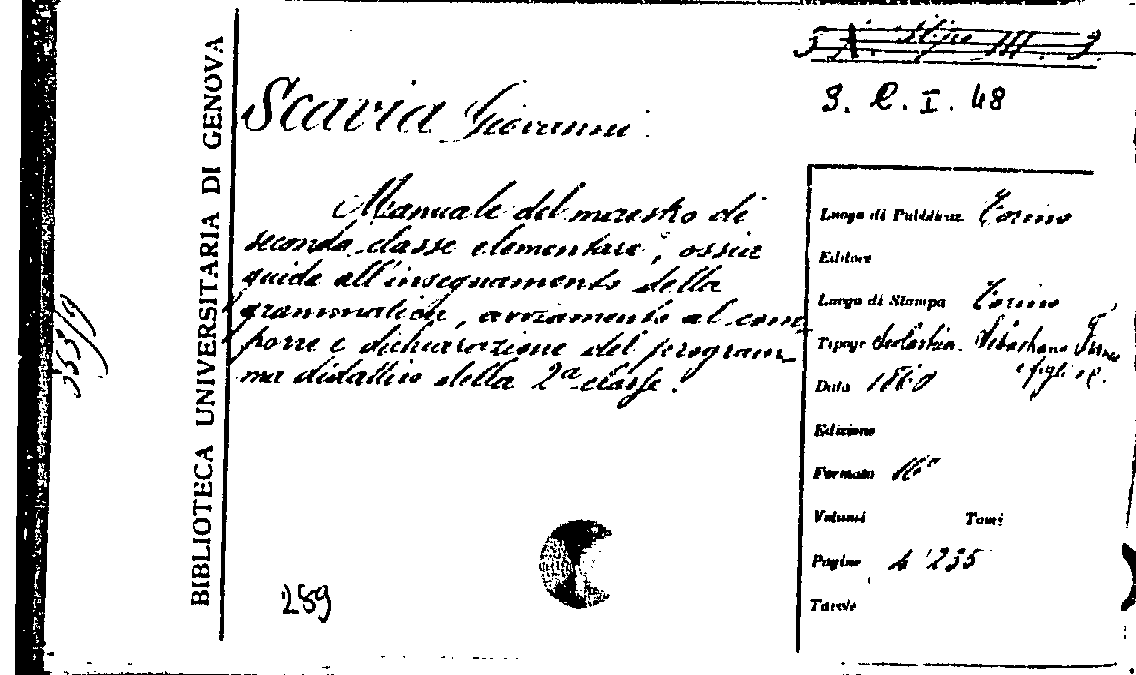 BIBLIOTECA UNIVERSITARIA DI GENOVA
3 A. Stipo III. 3
3. C. I. 48
Scavia Giovanni.
Manuale del maestro di
seconda classe elementare, ossia
guida all'insegnamento della
grammatica, avviamento al com-
porre e dichiarazione del program-
ma didattico della 2ª classe.
Luogo di Pubblicaz. Torino
Editore
Luogo di Stampa Torino
Tipogr. Scolastica. Sebastiano Franco
e figli e C.
Data 1860
Edizione
Formato 16°
Volumi Tomi
Pagine 4 235
Tavole
289